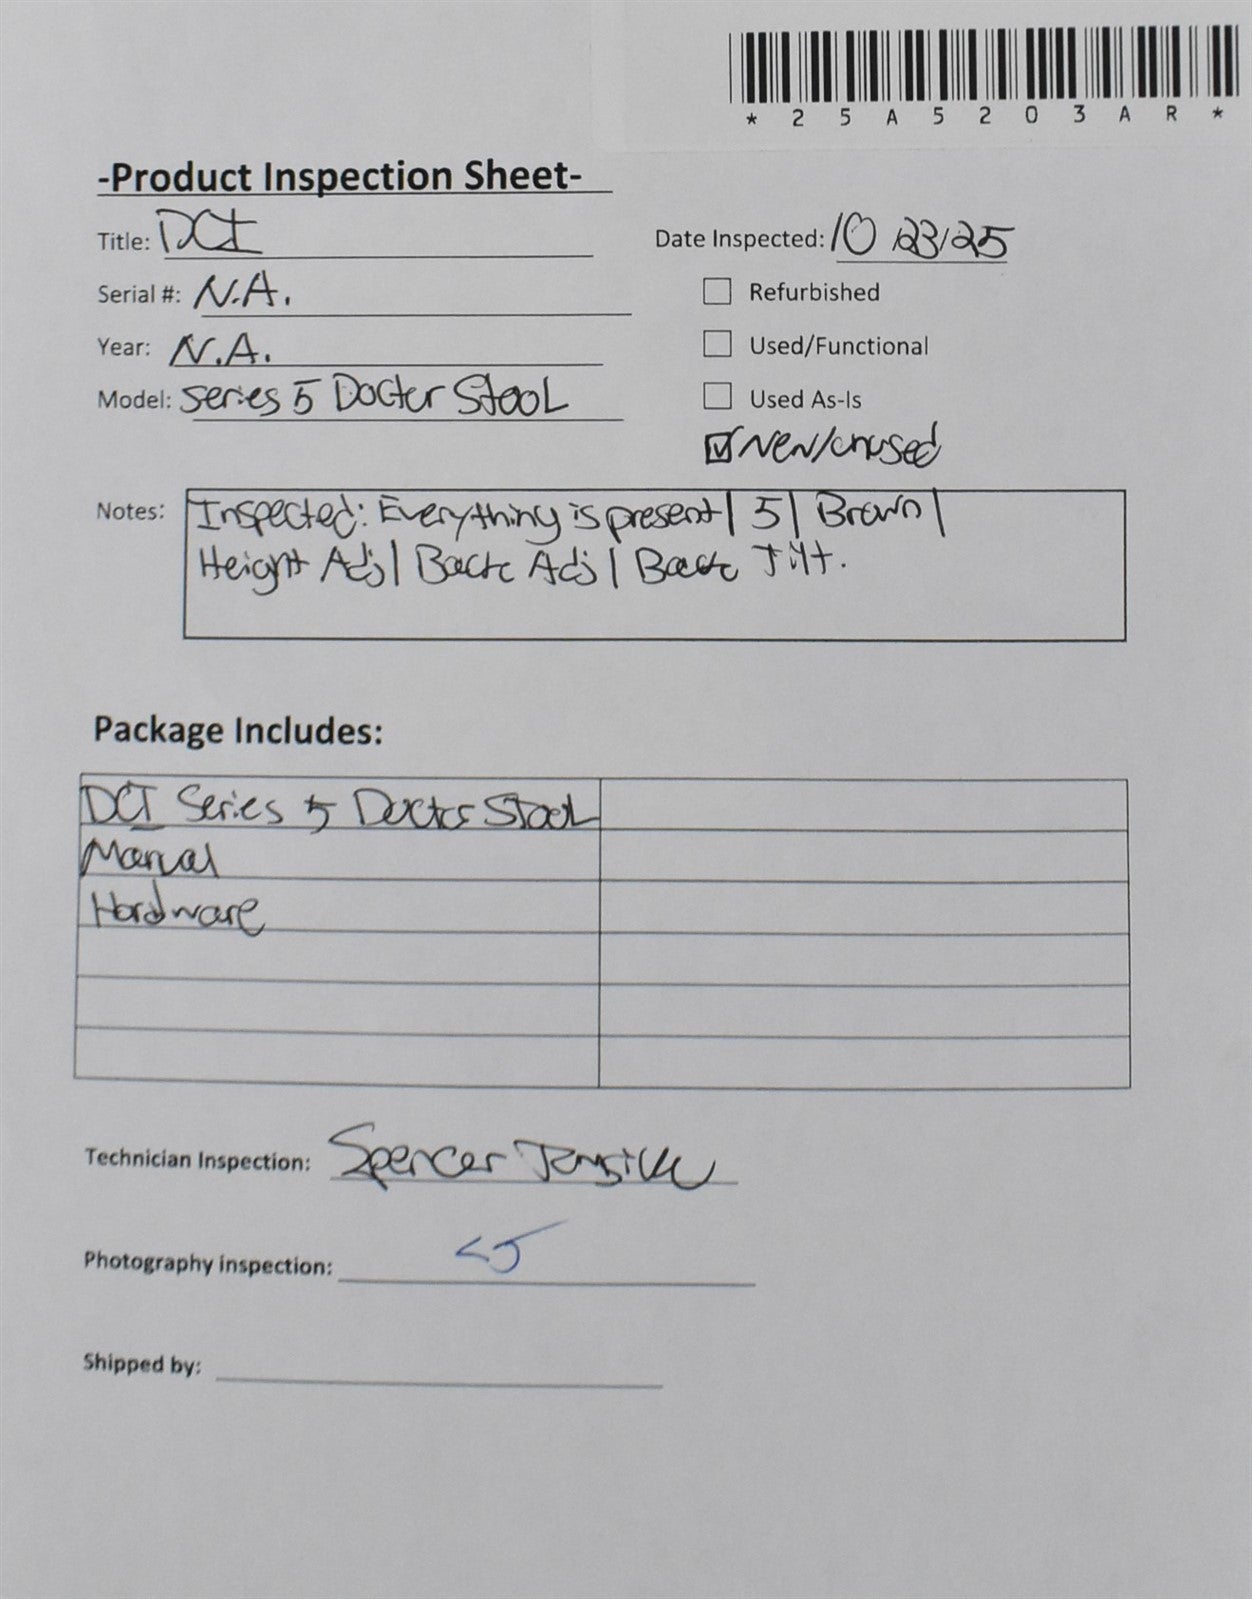 *25A5203AR*
-Product Inspection Sheet-
Title: DCI
Date Inspected: 10/23/25
Serial #: N.A.
Refurbished
Year: N.A.
Used/Functional
Model: Series 5 Doctor Stool
Used As-Is
New/unused
Notes: Inspected: Everything is present | 5 | Brown |
Height Adj | Back Adj | Back Tilt.
Package Includes:
DCI Series 5 Doctor Stool
Manual
Hardware
Technician Inspection: Spencer
Photography inspection:
Shipped by: